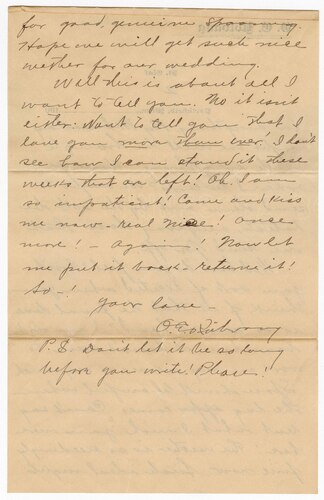 for good, genuine
Hope we will get such nice
wether for our wedding.
Well this is about all I
want to tell you. No it isn't
either: Want to tell you that I
love you more than ever! I don't
see how I can stand it these
weeks that are left! Oh I am
so impatient! Come and kiss
me now - real nice! Once
more! - Again! Now let
me put it back - return it!
So - !
Your love -
P.S. Don't let it be so long
before you write! Please!